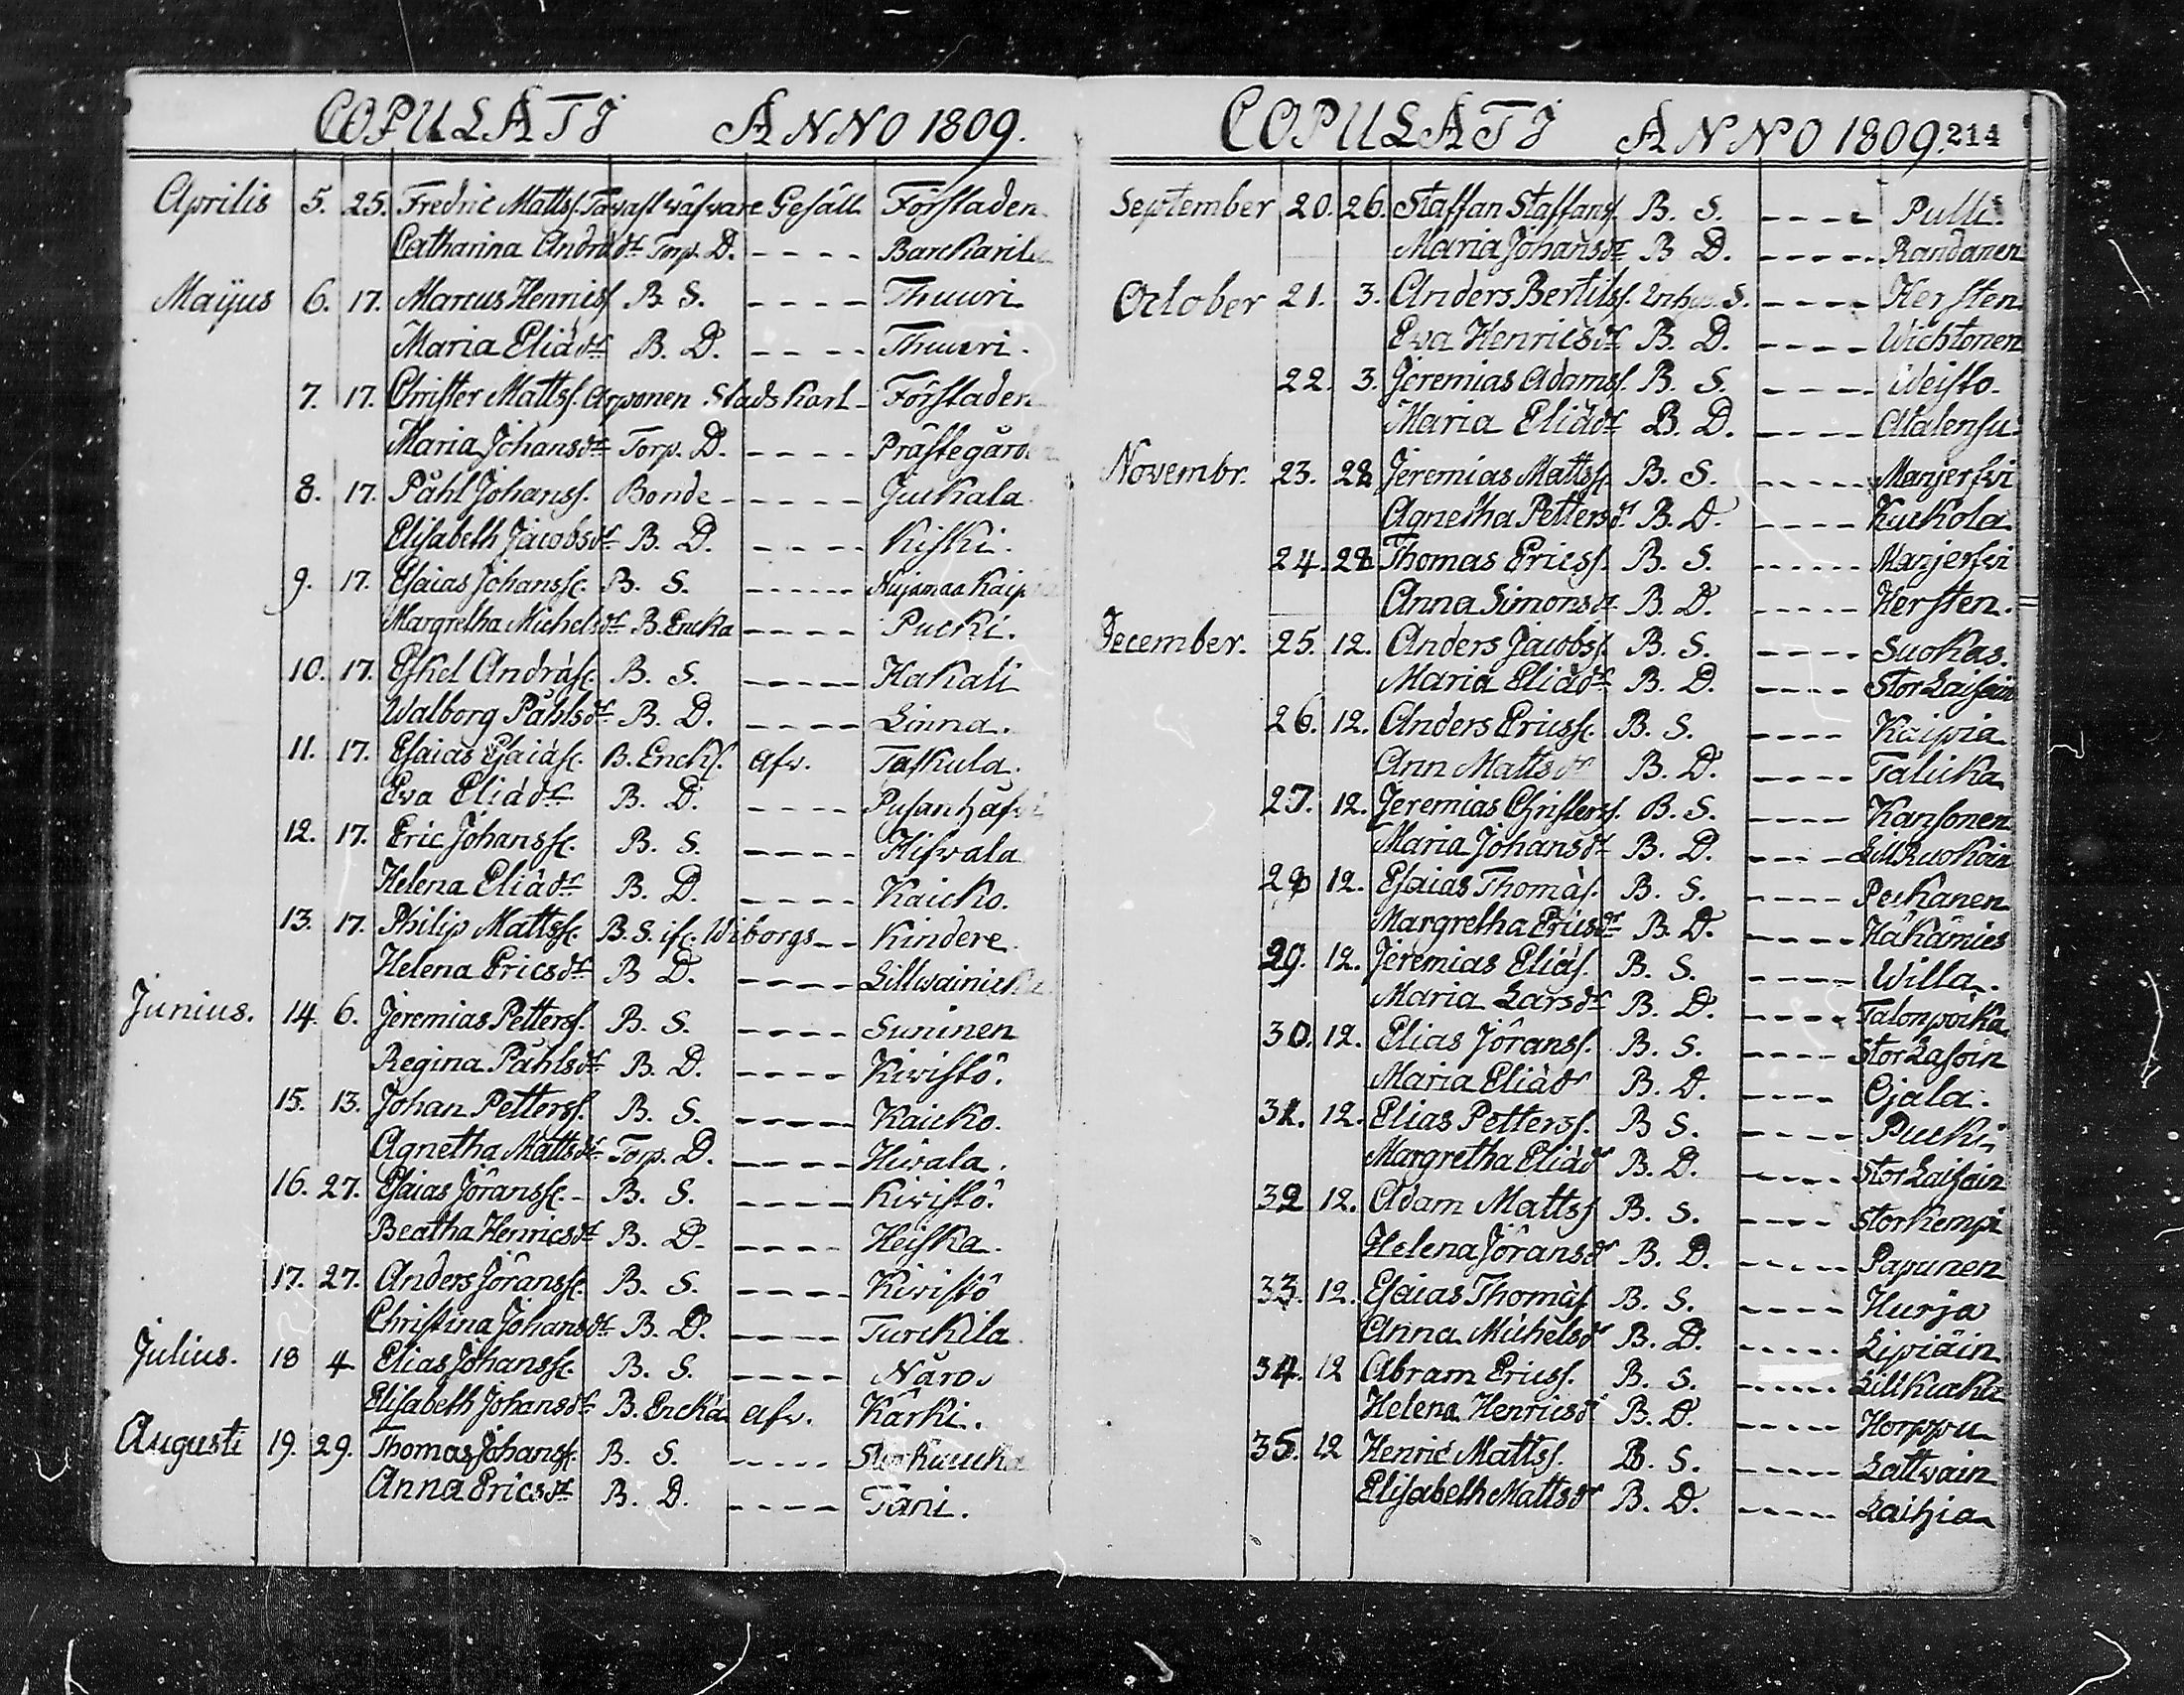 COPULATI ANNO 1809.
Aprilis 5. 25. Fredric Mattss. Gesäll Förstaden.
Catharina Andräd:r Torp. D. - - - -
Majus 6. 17. Marcus Henricss. B. S. - - - - Thuuri.
Maria Eliäd:r B. D. - - - - Thuuri.
7. 17. Christer Mattss. Arponen Stads Karl - Förstaden
Maria Johansd:r Torp. D. - - - - Prästegården
8. 17. Påhl Johanss. Bonde - - - - - Juckala.
Elisabeth Jacobsd:r B. D. - - - - Kiski.
9. 17. Esaias Johanss. B. S. - - - - -
Margretha Michelsd:r B. Encka - - - - Pucki.
10. 17. Eskel Andräss. B. S. - - - - - Hakali
Walborg Påhlsd:r B. D. - - - - Linna.
11. 17. Esaias Esaiäss. B. Enckl. afv. Taskula.
Eva Eliäd:r B. D. - - - -
12. 17. Eric Johanss. B. S. - - - - Hifwala
Helena Eliäd:r B. D. - - - - Kaicko.
13. 17. Philip Mattss. B. S. ifr. Wiborgs - - Kindere.
Helena Ericsd:r B D. - - - -
Junius. 14. 6. Jeremias Petterss. B. S. - - - - Suninen
Regina Påhlsd:r B. D. - - - - Kivistö.
15. 13. Johan Petterss. B. S. - - - - Kaicko.
Agnetha Mattsd:r Torp. D. - - - - Hivala.
16. 27. Esaias Jöranss. - B. S. - - - - Kivistö.
Beatha Henricsd:r B. D. - - - - Heiska.
17. 27. Anders Jöranss. B. S. - - - - Kivistö
Christina Johansd:r B. D. - - - - Turckila.
Julius. 18 4 Elias Johanss. B. S. - - - - Näro.
Elisabeth Johansd:r B. Encka afv. Kärki.
Augusti 19. 29. Thomas Johanss. B. S. - - - - -
Anna Ericsd:r B. D. - - - - Tani.
COPULATI ANNO 1809. 214
September 20. 26. Staffan Staffanss. B. S. - - - - Pulli.
Maria Johansd:r B D. - - - - Randanen
October 21. 3. Anders Bertilss. S. - - - - Hersten
Eva Henricsd:r B. D. - - - - Wichtonen
22. 3. Jeremias Adamss. B. S. - - - - Weisto.
Maria Eliäd:r B. D. - - - -
Novembr. 23. 28 Jeremias Mattss. B. S. - - - - - Manjerfvi
Agnetha Pettersd:r B. D. - - - - Kuckola.
24. 28 Thomas Ericss. B. S. - - - - - - Manjerfvi
Anna Simonsd:r B. D. - - - - - Hersten.
December. 25. 12. Anders Jacobss. B. S. - - - - Suokas.
Maria Eliäd:r B. D. - - - - Stor
26. 12. Anders Ericss. B. S. - - - - Kaipia
Ann Mattsd:r B. D. - - - - Talicka
27. 12. Jeremias Christerss. B. S. - - - - Kansonen
Maria Johansd:r B. D. - - - -
28 12. Esaias Thomäs. B. S. - - - - Peckanen
Margretha Ericsd:r B. D. - - - - Häkämies
29. 12. Jeremias Eliäs. B. S. - - - - Willa.
Maria Larsd:r B. D. - - - - Talonpoika
30. 12. Elias Jöranss. B. S. - - - - Stor Lasoin
Maria Eliäd:r B. D. - - - - Ojala.
31. 12. Elias Petterss. B S. - - - - Pucki
Margretha Eliäd:r B. D. - - - - Stor Laihoin
32 12. Adam Mattss B. S. - - - - Storkempi
Helena Jöransd:r B. D. - - - - Papunen
33. 12. Esaias Thomäs B. S. - - - - Hurja
Anna Michelsd:r B. D. - - - - - Lipiäin
34. 12 Abram Ericss. B. S. - - - - - Lillkucka
Helena Henricsd:r B. D. - - - - Horppu
35. 12 Henric Mattss. B. S. - - - - - Lattvain
Elisabeth Mattsd:r B. D. - - - - - Laihia